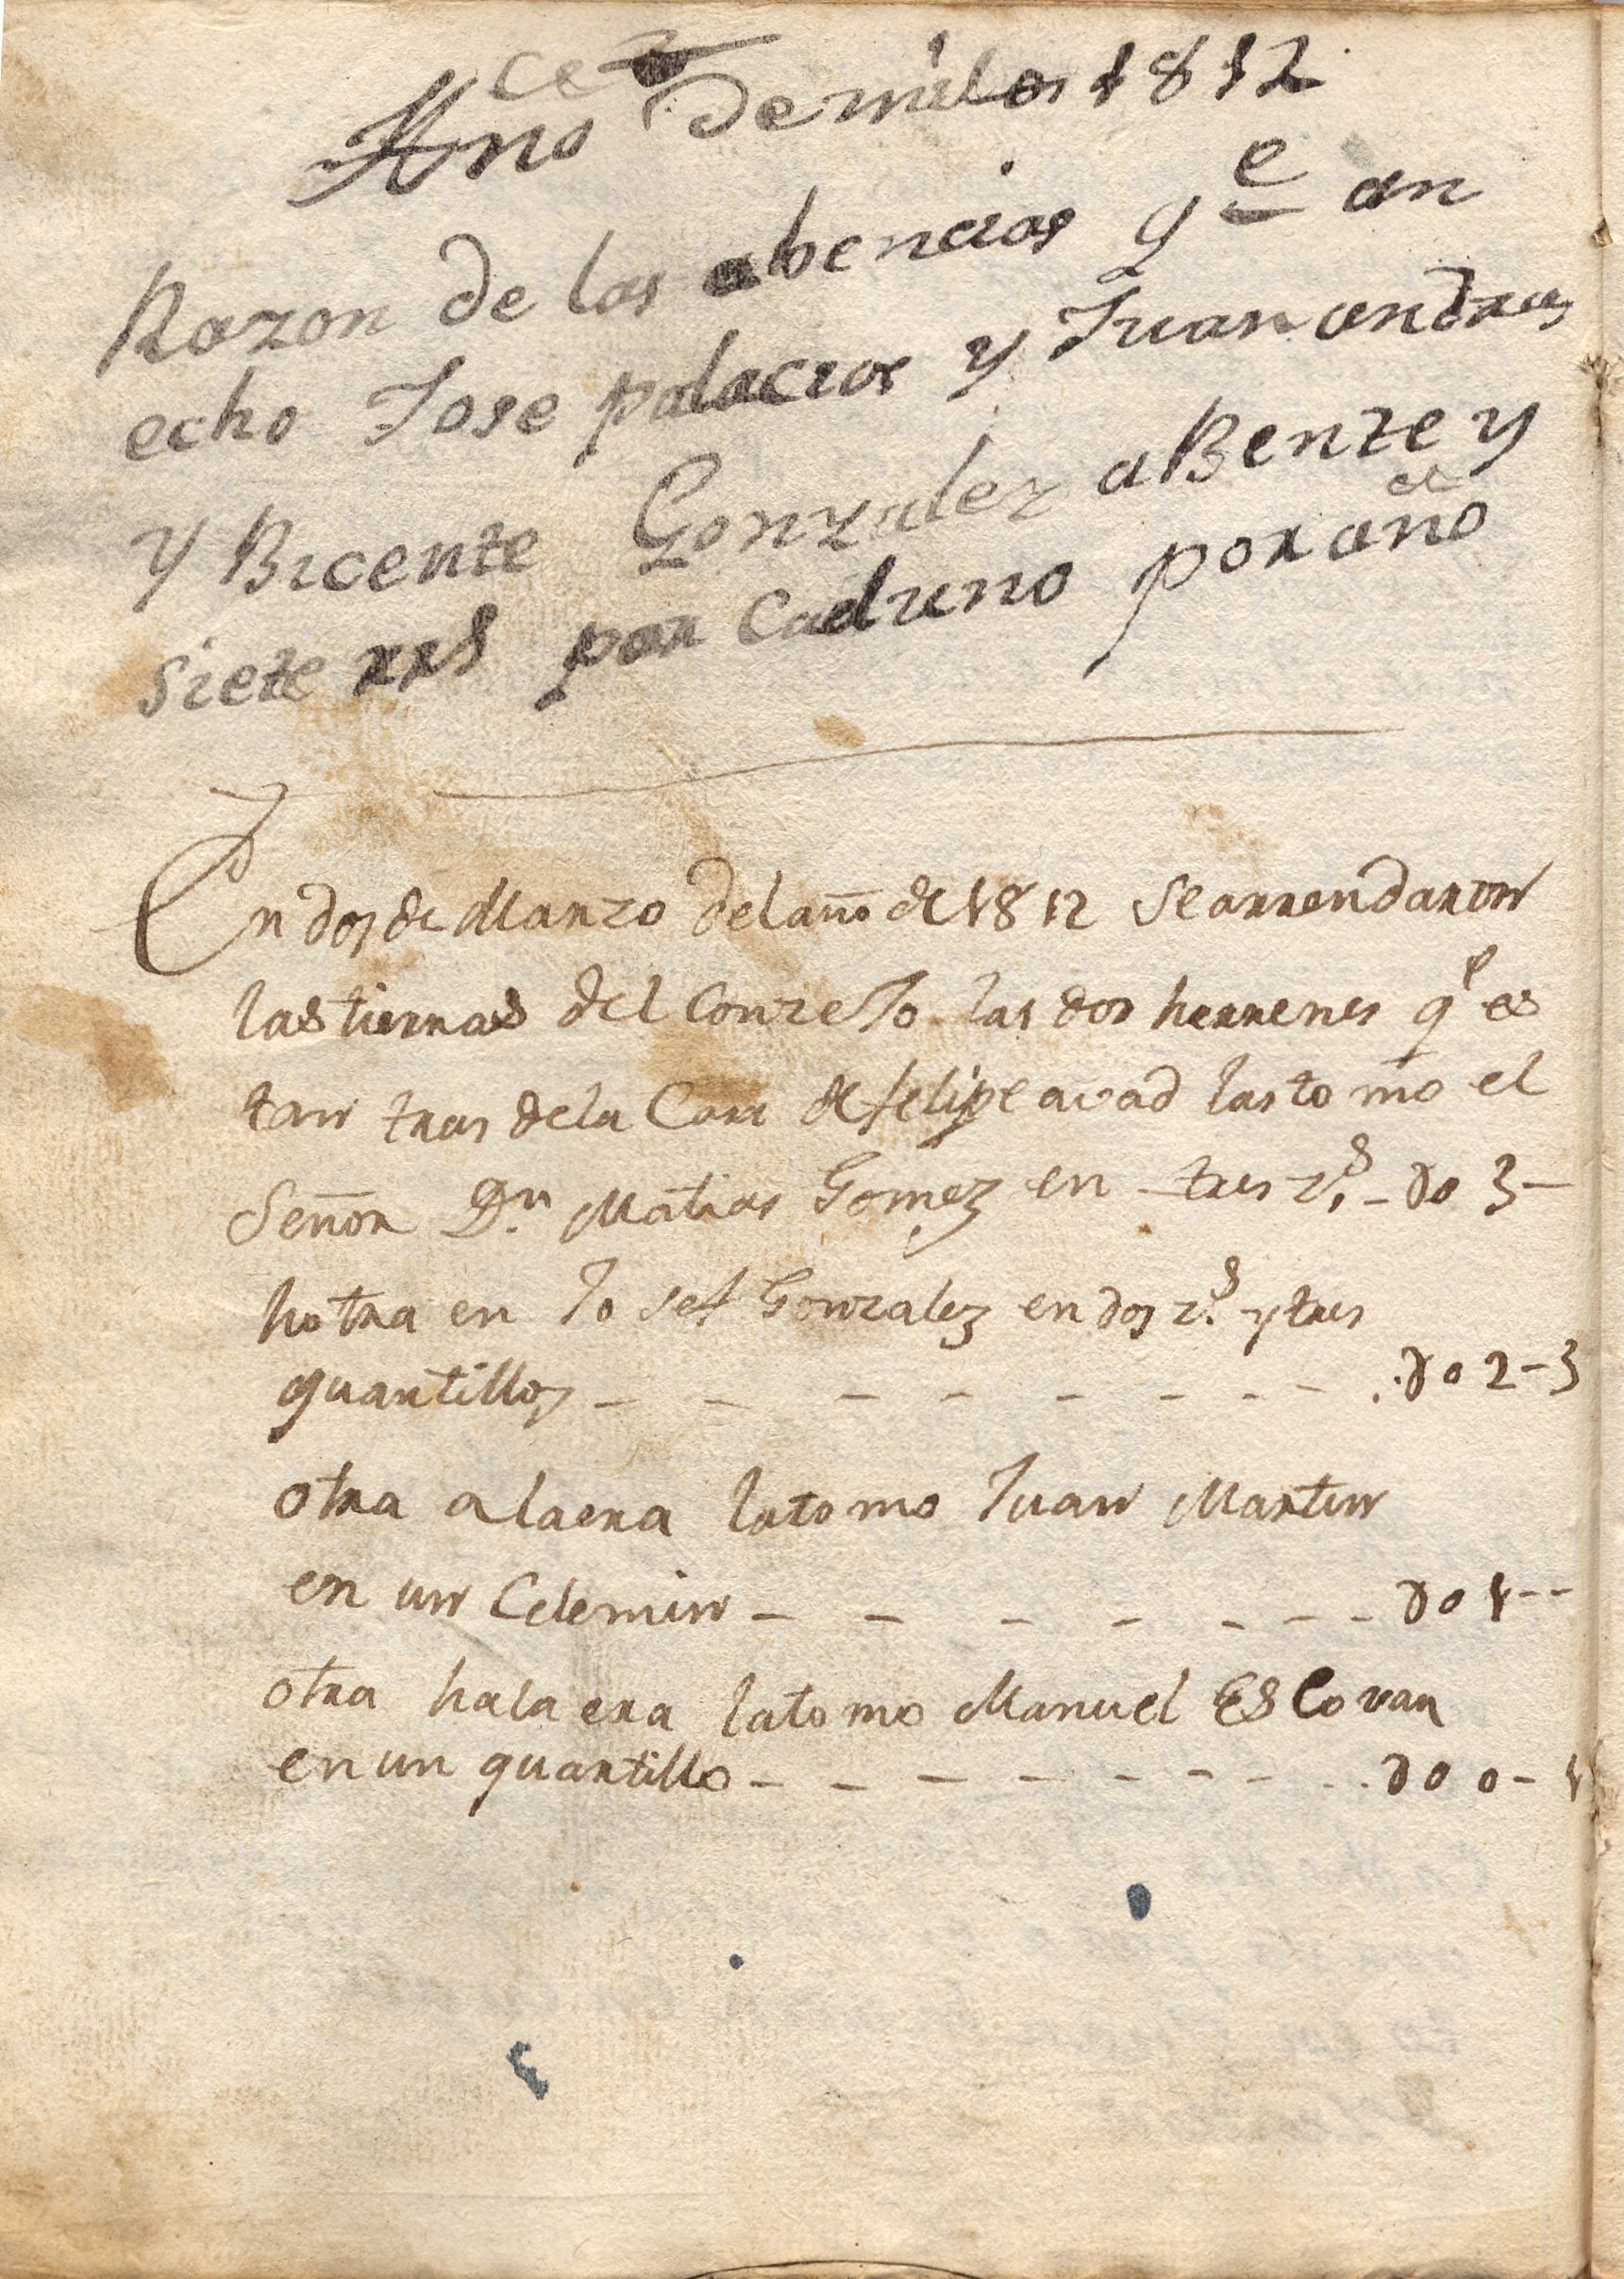 Ano de mil os 1812
Razon de las abencias qe an
echo Jose palacios y Juan andres
y Bicente Gonzalez a Bente y
siete rrs por cada uno por año
En dos de Marzo del año de 1812 se arrendaron
las tierras del Conzejo las dos herrenes qe es
tan tras de la Casa de felipe avad las tomo el
Señor Dn Matias Gomez en tres rs - do 3 -
hotra en Josef Gonzalez en dos rs y tres
quartillos - - - - - - - - do 2 - 3
otra a la era la tomo Juan Martin
en un Celemin - - - - - - - do 1 - -
otra ha la era la tomo Manuel Escovar
en un quartillo - - - - - - - - - do 0 - 1